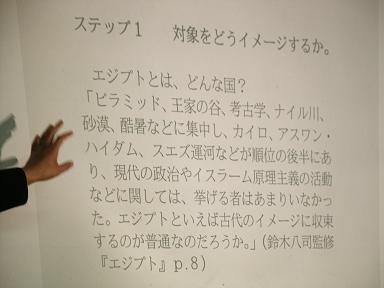 ステップ1　対象をどうイメージするか。
エジプトとは、どんな国?
「ピラミッド、王家の谷、考古学、ナイル川、
砂漠、酷暑などに集中し、カイロ、アスワン・
ハイダム、スエズ運河などが順位の後半にあ
り、現代の政治やイスラーム原理主義の活動
などに関しては、挙げる者はあまりいなかっ
た。エジプトといえば古代のイメージに収束
するのが普通なのだろうか。」(鈴木八司監修
『エジプト』p.8)